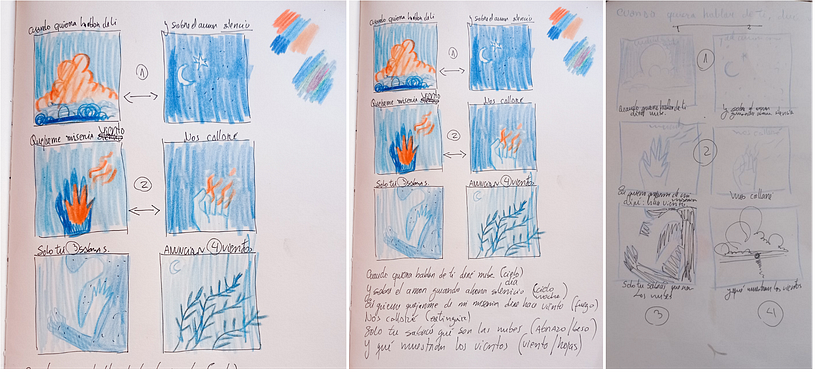 Cuando quiera hablar de ti
y sobre el amor silencio
1
Quejarme miseria viento
Nos callaré
2
Solo tu 3 sabrías.
Anuncian 4 vientos
Cuando quiera hablar de ti
y sobre el amor silencio
1
Quejarme miseria viento
Nos callaré
2
Solo tu 3 sabrías.
Anuncian 4 vientos
Cuando quiera hablar de ti diré nube (cielo)
día
Y sobre el amor guardo ahora silencio (cielo noche)
quiera quejarme de mi miseria diré hace viento (fuego)
Nos callaré (extinguir)
Solo tu sabrás qué son las nubes (Abrazo/beso)
Y qué muestran los vientos (viento/hojas)
cuando quiera hablar de ti, diré
1
Cuando quiera hablar de ti
diré nube.
Y sobre el amor
2
diré: hace viento
nos callaré
Solo tu sabrás que son
las nubes
y qué muestran los vientos
3
4